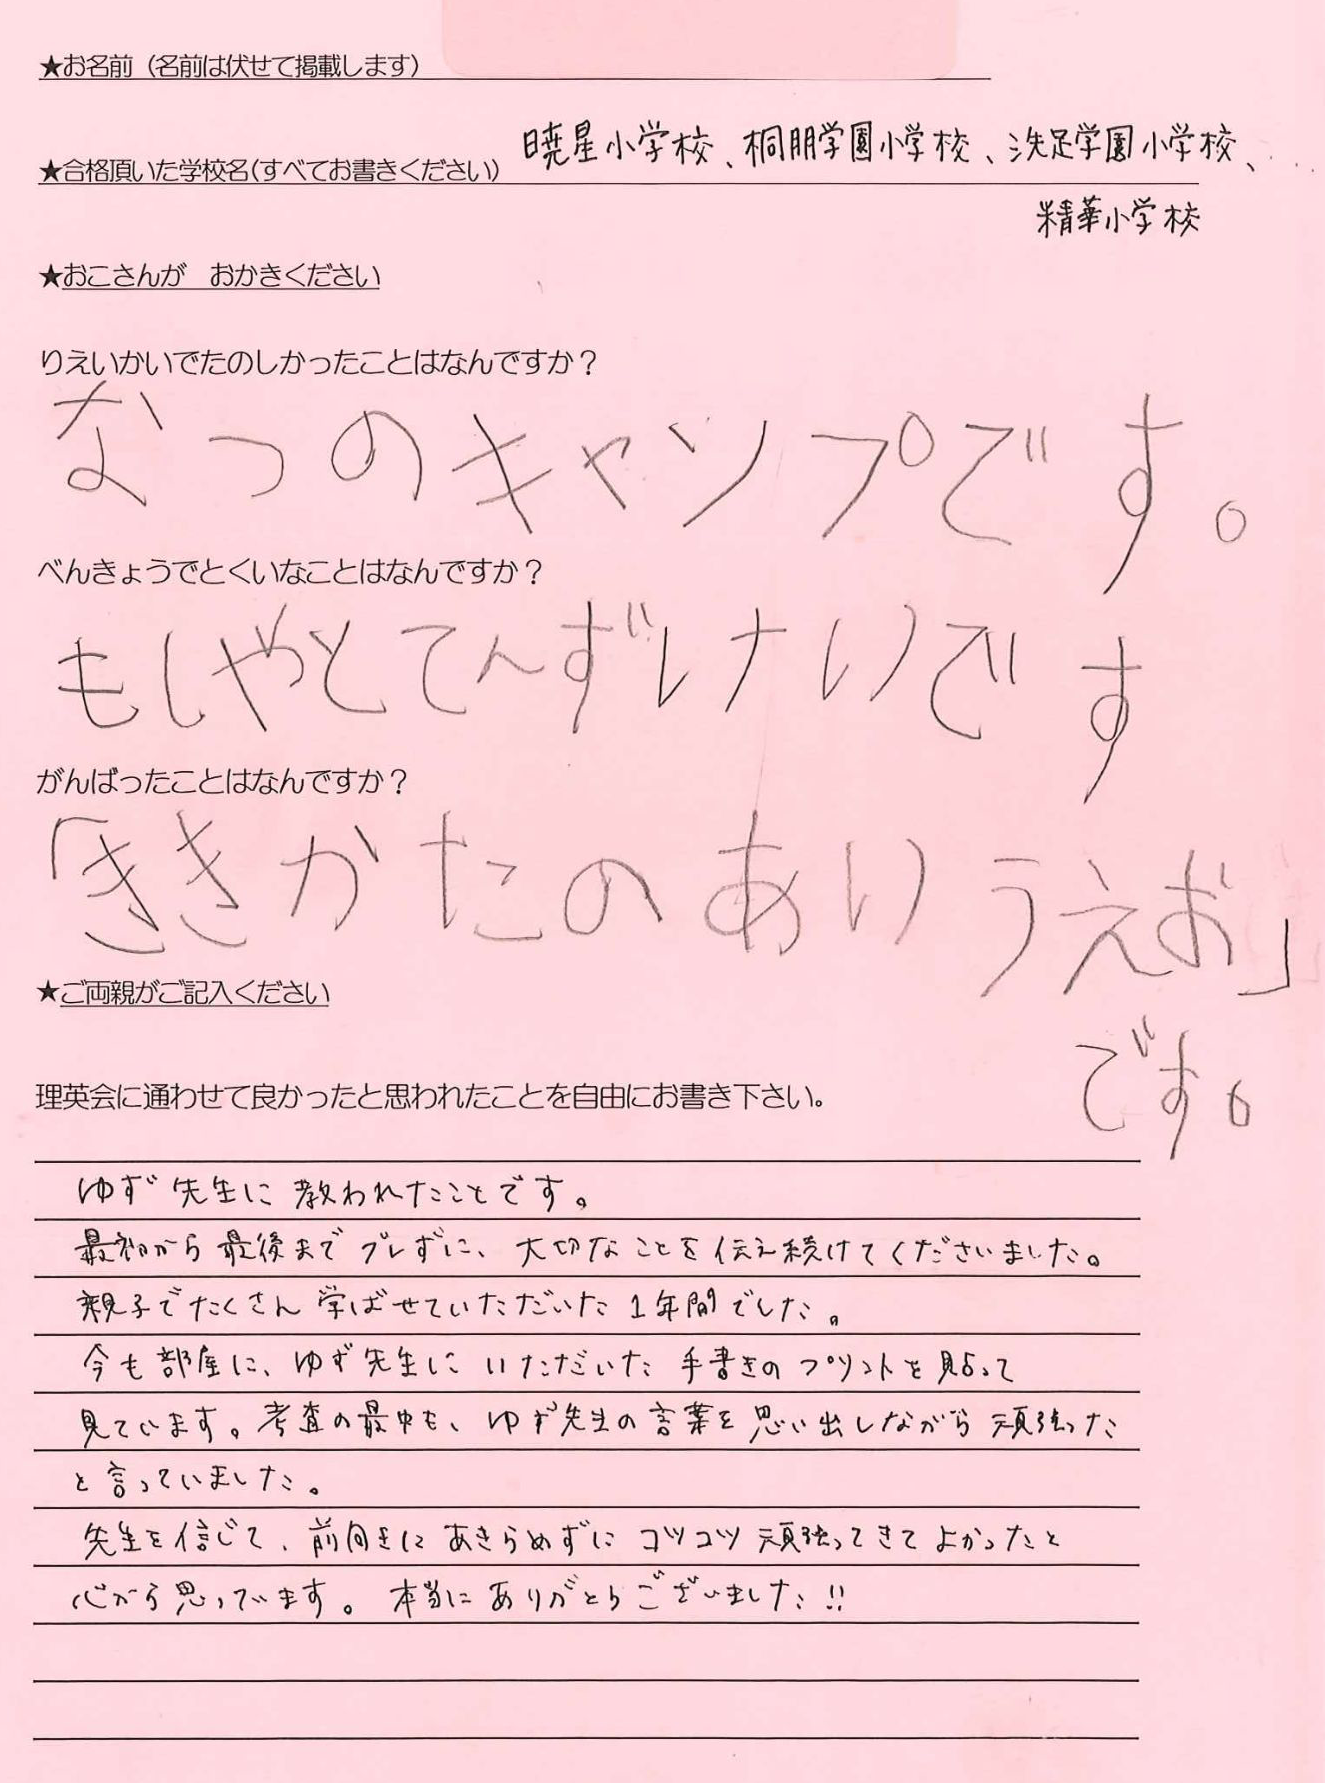 ★お名前（名前は伏せて掲載します）
★合格頂いた学校名（すべてお書きください） 暁星小学校、桐朋学園小学校、洗足学園小学校、
精華小学校
★おこさんが　おかきください
りえいかいでたのしかったことはなんですか？
なつのキャンプです。
べんきょうでとくいなことはなんですか？
もしゃとてんずしけいです
がんばったことはなんですか？
「ききかたのあいうえお」
です。
★ご両親がご記入ください
理英会に通わせて良かったと思われたことを自由にお書き下さい。
ゆず先生に教われたことです。
最初から最後までブレずに、大切なことを伝え続けてくださいました。
親子でたくさん学ばせていただいた1年間でした。
今も部屋に、ゆず先生にいただいた手書きのプリントを貼って
見ています。考査の最中も、ゆず先生の言葉を思い出しながら頑張った
と言っていました。
先生を信じて、前向きにあきらめずにコツコツ頑張ってきてよかったと
心から思っています。本当にありがとうございました!!